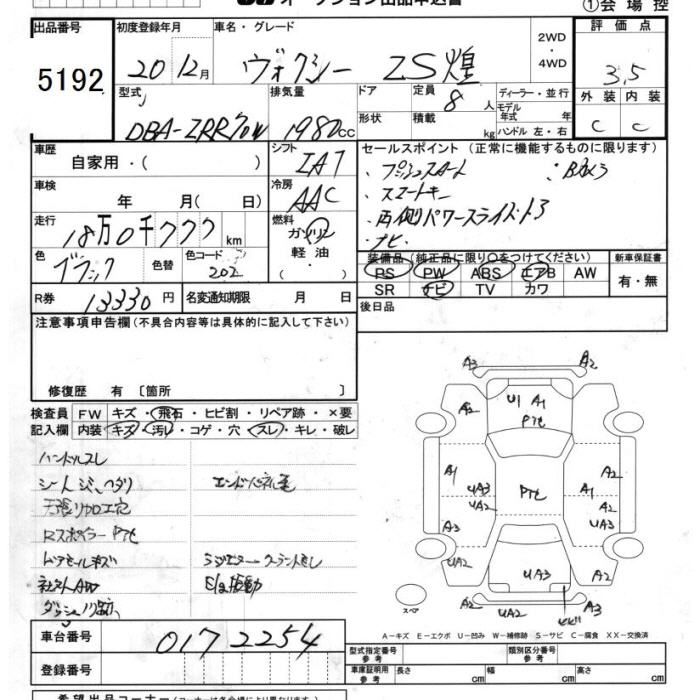 オークション出品申込書
①会場控
出品番号
5192
初度登録年月
20 12月
車名・グレード
ヴォクシー ZS煌
2WD
・
4WD
評価点
3.5
外装 内装
C C
型式
DBA-ZRR70W
排気量
1980cc
ドア
形状
定員
8人
積載
kg
ディーラー・並行
モデル
年式 年
ハンドル 左・右
車歴
自家用・( )
シフト
IAT
車検
年 月( 日)
冷房
AAC
走行
18万0千777km
燃料
ガソリン
軽油
色
ブラック
色替
色コード
202
R券
13330円
名変通知期限 月 日
セールスポイント(正常に機能するものに限ります)
・プッシュスタート ・Bカメラ
・スマートキー
・両側パワースライドドア
・ナビ
装備品(純正品に限り○をつけてください)
PS PW ABS エアB AW
SR ナビ TV カワ
新車保証書
有・無
後日品
注意事項申告欄(不具合内容等は具体的に記入して下さい)
修復歴 有〔箇所 〕
検査員
記入欄
FW キズ・飛石・ヒビ割・リペア跡・×要
内装 キズ・汚レ・コゲ・穴・スレ・キレ・破レ
ハンドルスレ
シートシミ、ヘタリ
天張り加工穴
Rスポイラー Pｱﾋ
社外AW
A3 A2
A2 U1 A1 A2
A1 UA3 UA2 A2
A3 A2 UA3
UA2 UA3 A2
UA2 A3
スペア
A-キズ E-エクボ U-凹み W-補修跡 S-サビ C-腐食 XX-交換済
車台番号
0172254
登録番号
型式指定番号
参考
類別区分番号
参考
車庫証明用
参考
長さ cm 幅 cm 高さ cm
希望出品コーナー